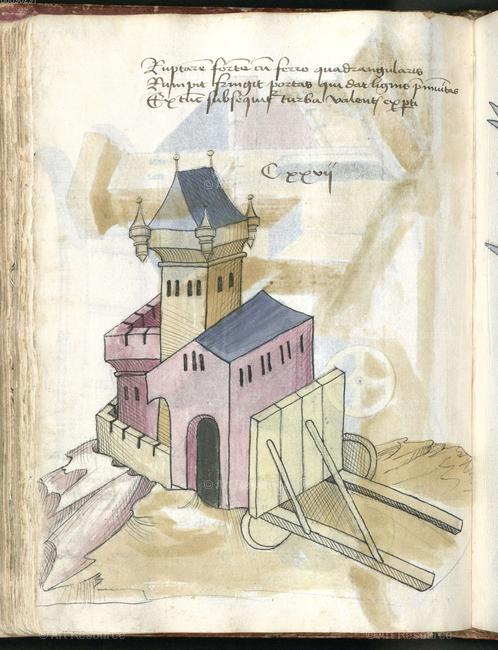 Ruptarē forte cū ferro quadrangularis
Rumpit fringit portas qui dat lignis
Ex tūc subsequit turba valens expti
C xxvii
© Art Resource
© Art Resource
© Art Resource
© Art Resource